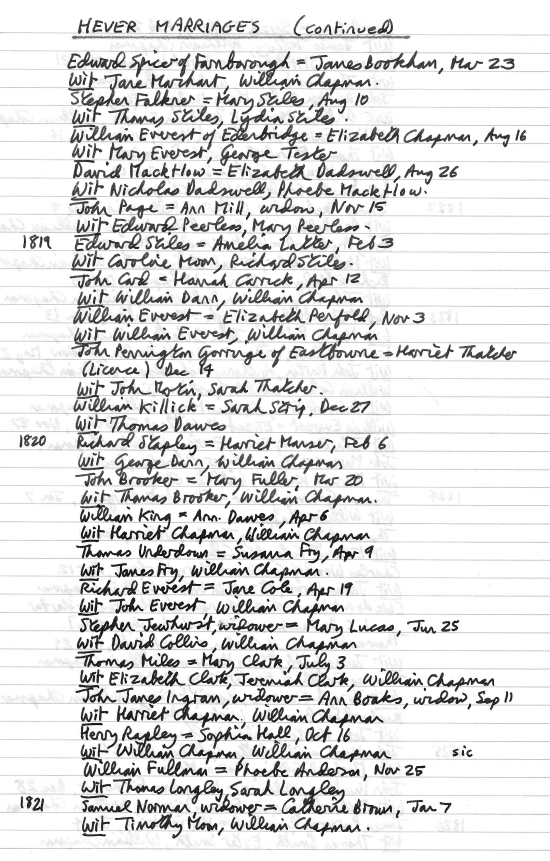 HEVER MARRIAGES (continued)
Edward Spicer of Farnborough = James Bookham, Mar 23
Wit Jane Marchant, William Chapman.
Stepher Falkner = Mary Stiles, Aug 10
Wit Thomas Stiles, Lydia Stiles.
William Everest of Edenbridge = Elizabeth Chapman, Aug 16
Wit Mary Everest, George Tester
David Mackllow = Elizabeth Dadswell, Aug 26
Wit Nicholas Dadswell, Phoebe Mackllow.
John Page = Ann Mill, widow, Nov 15
Wit Edward Peerless, Mary Peerless.
1819 Edward Stiles = Amelia Latter, Feb 3
Wit Caroline Moon, Richard Stiles.
John Card = Hannah Carrick, Apr 12
Wit William Dann, William Chapman
William Everest = Elizabeth Penfold, Nov 3
Wit William Everest, William Chapman
John Pennington Gorringe of Eastbourne = Harriet Thatcher
(Licence) Dec 14
Wit John, Sarah Thatcher.
William Killick = Sarah Strip, Dec 27
Wit Thomas Dawes
1820 Richard Stapley = Harriet Manser, Feb 6
Wit George Dann, William Chapman
John Brooker = Mary Fuller, Mar 20
Wit Thomas Brooker, William Chapman.
William King = Ann Dawes, Apr 6
Wit Harriet Chapman, William Chapman
Thomas Underdown = Susanna Fry, Apr 9
Wit James Fry, William Chapman.
Richard Everest = Jane Cole, Apr 19
Wit John Everest, William Chapman
Stephen Jewhurst, widower = Mary Lucas, Jun 25
Wit David Collins, William Chapman
Thomas Miles = Mary Clark, July 3
Wit Elizabeth Clark, Jeremiah Clark, William Chapman
John James Ingram, widower = Ann Boaks, widow, Sep 11
Wit Harriet Chapman, William Chapman
Henry Rapley = Sophia Hall, Oct 16
Wit William Chapman, William Chapman sic
William Fullman = Phoebe Anderson, Nov 25
Wit Thomas Longley, Sarah Longley
1821 Samuel Norman, widower = Catherine Brown, Jan 7
Wit Timothy Moon, William Chapman.